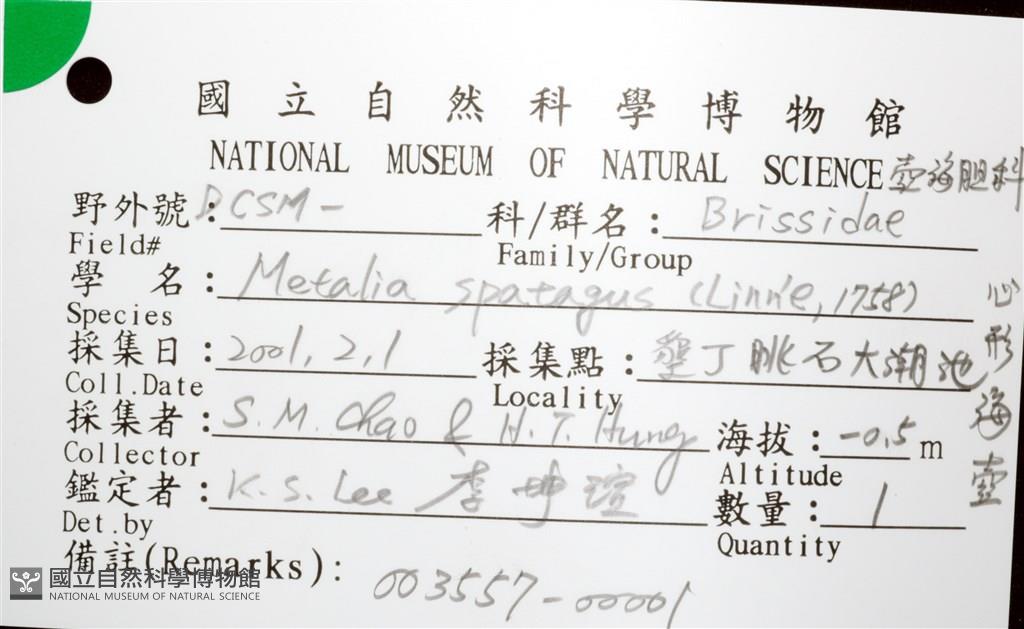 國立自然科學博物館
NATIONAL MUSEUM OF NATURAL SCIENCE 壺海胆科
野外號：DCSM- 科/群名：Brissidae
Field# Family/Group
學名：Metalia spatagus (Linn'e, 1758)
Species
心形海壺
採集日：2001, 2, 1 採集點：墾丁眺石大潮池
Coll.Date Locality
採集者：S. M. Chao & H. T. Hung 海拔：-0.5 m
Collector Altitude
鑑定者：K. S. Lee 李坤瑄 數量：1
Det.by Quantity
備註(Remarks)：
003557-00001
國立自然科學博物館
NATIONAL MUSEUM OF NATURAL SCIENCE